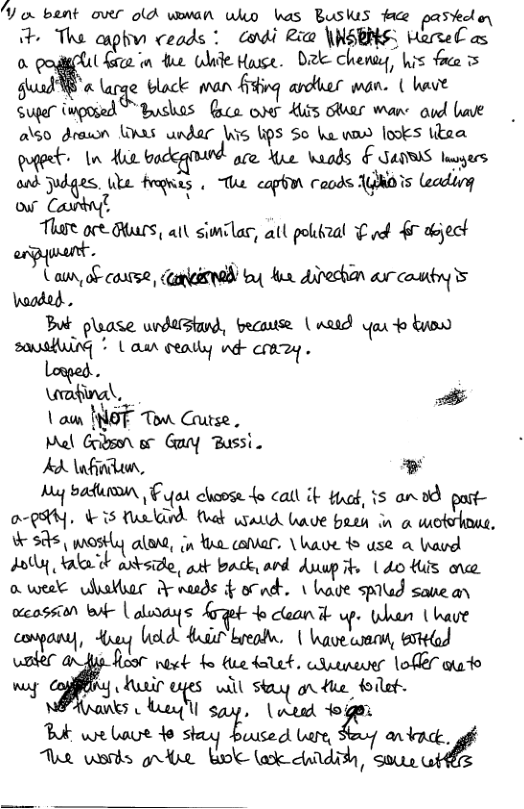 1) a bent over old woman who has Bushes face pasted on
it. The caption reads: Condi Rice INSERTS Herself as
a powerful force in the White House. Dick Cheney, his face is
glued to a large black man fisting another man. I have
super imposed Bushes face over this other man and have
also drawn lines under his lips so he now looks like a
puppet. In the background are the heads of various lawyers
and judges, like trophies. The caption reads: Who is leading
our Country?
There are others, all similar, all political if not for object
enjoyment.
I am, of course, concerned by the direction our country is
headed.
But please understand, because I need you to know
something: I am really not crazy.
Looped.
Irrational.
I am NOT Tom Cruise.
Mel Gibson or Gary Bussi.
Ad Infinitem.
My bathroom, if you choose to call it that, is an old port-
a-potty. It is the kind that would have been in a motorhome.
It sits, mostly alone, in the corner. I have to use a hand
dolly, take it outside, out back, and dump it. I do this once
a week whether it needs it or not. I have spilled some on
occassion but I always forget to clean it up. When I have
company, they hold their breath. I have warm, bottled
water on the floor next to the toilet. Whenever I offer one to
my company, their eyes will stay on the toilet.
No thanks, they'll say. I need to go.
But we have to stay focused here, stay on track.
The words on the book look childish, some letters